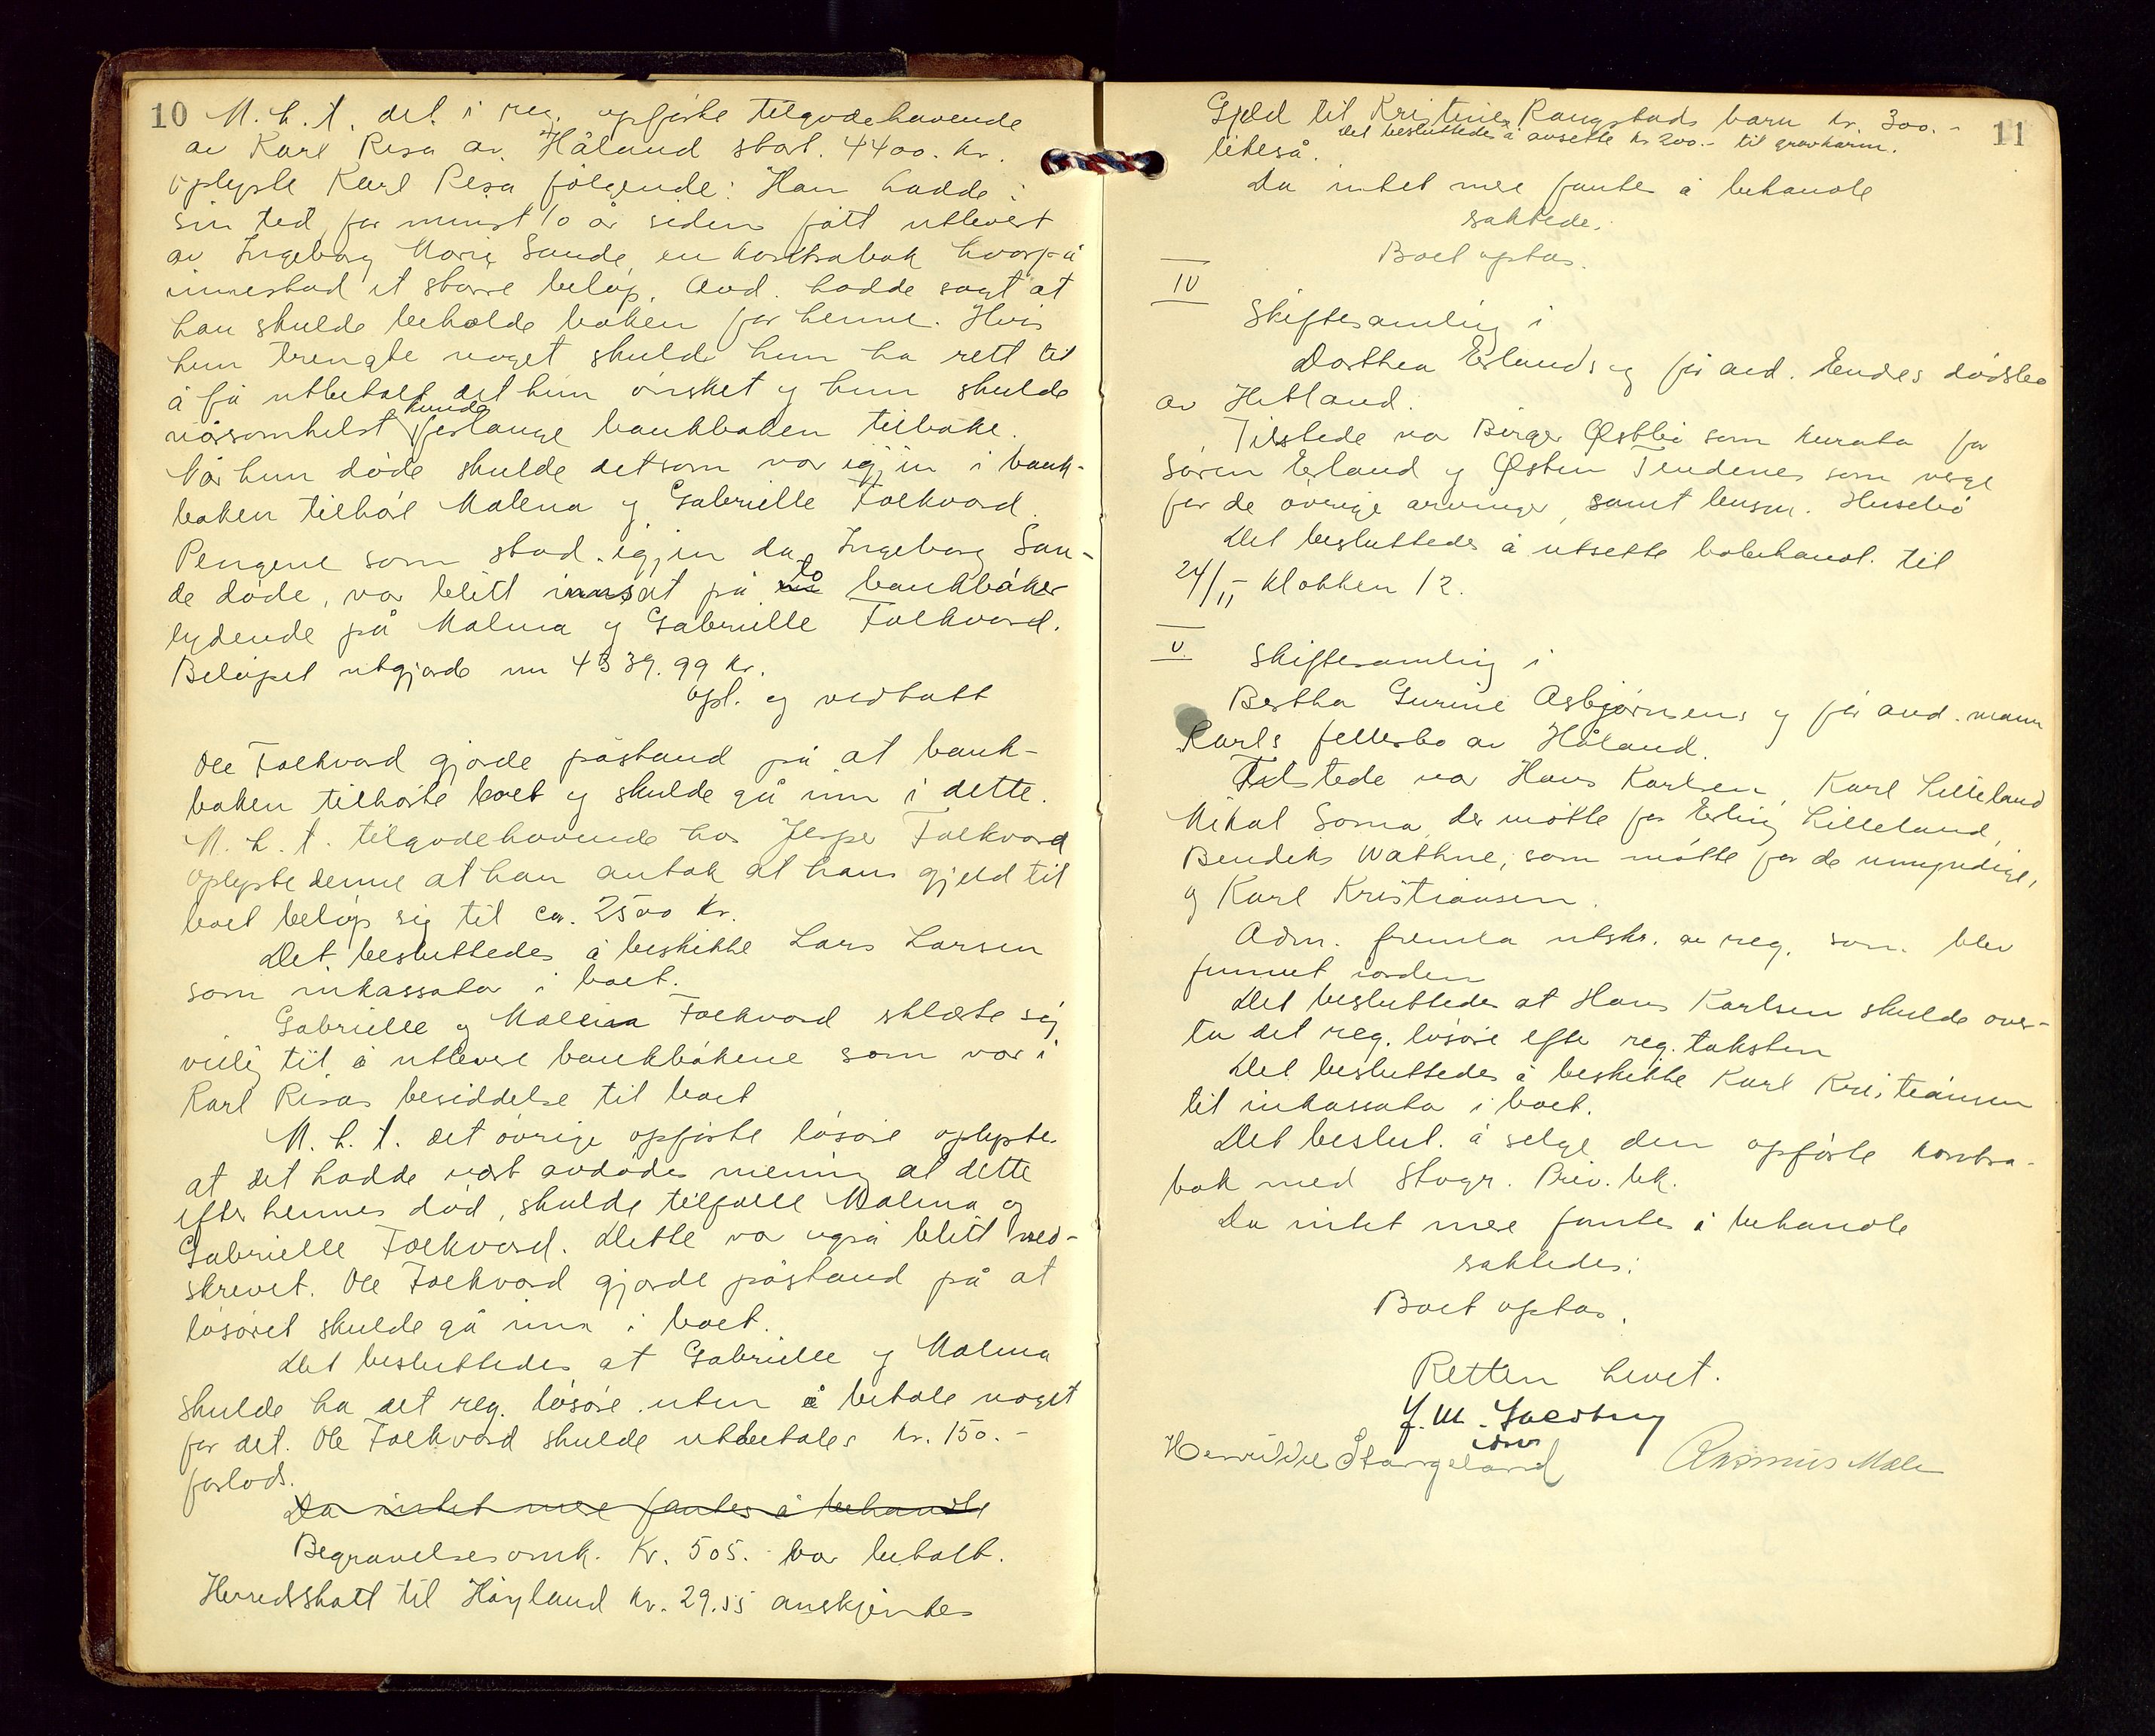 10 M. h. t. det i reg. opførte tilgodehavende
av Karl Risa av Håland stort. 4400. kr.
oplyste Karl Risa følgende: Han hadde i
sin tid for minst 10 år siden fått utlevert
av Ingeborg Marie Sande en kontrabok hvorpå
innestod et større beløp. Avd. hadde sagt at
han skulde beholde boken for henne. Hvis
hun trengte noget skulde hun ha rett til
å få utbetalt det hun ønsket og hun skulde
nårsomhelst kunde forlange bankboken tilbake.
Når hun døde skulde det som var igjen i bank-
boken tilhøre Malena og Gabrielle Folkvord.
Pengene som stod igjen da Ingeborg San-
de døde, var blitt innsat på to bankbøker
lydende på Malena og Gabrielle Folkvord.
Beløpet utgjorde nu 4339.99 kr.
opl. og vedtatt
Ole Folkvord gjorde påstand på at bank-
boken tilhørte boet og skulde gå inn i dette.
M. h. t. tilgodehavende hos Jesper Folkvord
oplyste denne at han antok at hans gjeld til
boet beløp sig til ca. 2500 kr.
Det besluttedes å beskikke Lars Larsen
som inkassator i boet.
Gabrielle og Malena Folkvord erklærte sig
villig til å utlevere bankbøkene som var i
Karl Risas besiddelse til boet
M. h. t. det øvrige opførte løsøre oplystes
at det hadde vært avdødes mening at dette
efter hennes død, skulde tilfalle Malena og
Gabrielle Folkvord. Dette var også blitt ned-
skrevet. Ole Folkvord gjorde påstand på at
løsøret skulde gå inn i boet.
Det besluttedes at Gabrielle og Malena
skulde ha det reg. løsøre uten å betale noget
for det. Ole Folkvord skulde utbetales kr. 150.-
forlods.
Da intet mere fantes å behandle
Begravelsesomk. Kr. 505.- var betalt.
Herredsskatt til Høyland kr. 29.55 anerkjentes
Gjeld til Kristine Rangstads barn kr. 300.- 11
likeså. Det besluttedes å avsette kr 200.- til gravkarm.
Da intet mere fantes å behandle
sluttedes:
Boet optas.
IV
Skiftesamling i
Dorthea Erlands og før avd. Endes dødsbo
av Hetland.
Tilstede var Birger Østbø som kurator for
Søren Erland og Østen Tendenes som verge
for de øvrige arvinger, samt lensm. Husebø
Det besluttedes å utsette bobehandl. til
24/11 klokken 12.
V
Skiftesamling i
Bertha Gurine Asbjørnsens og før avd. mann
Karls fellesbo av Håland.
Tilstede var Hans Karlsen, Karl Lilleland
Mikal Soma der møtte for Erling Lilleland,
Bendiks Wathne, som møtte for de umyndige,
og Karl Kristiansen.
Adm. fremla utskr. av reg. som blev
funnet iorden
Det besluttedes at Hans Karlsen skulde over-
ta det reg. løsøre efter reg. taksten
Det besluttedes å beskikke Karl Kristiansen
til inkassator i boet.
Det beslut. å selge den opførte kontra-
bok med Stvgr. Priv. bk.
Da intet mere fantes å behandle
sluttedes:
Boet optas.
Retten hevet.
Stangeland Rasmus